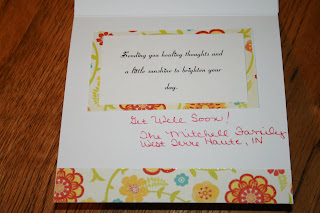 Sending you healing thoughts and
a little sunshine to brighten your
day.
Get Well Soon!
The Mitchell Family
West Terre Haute, IN